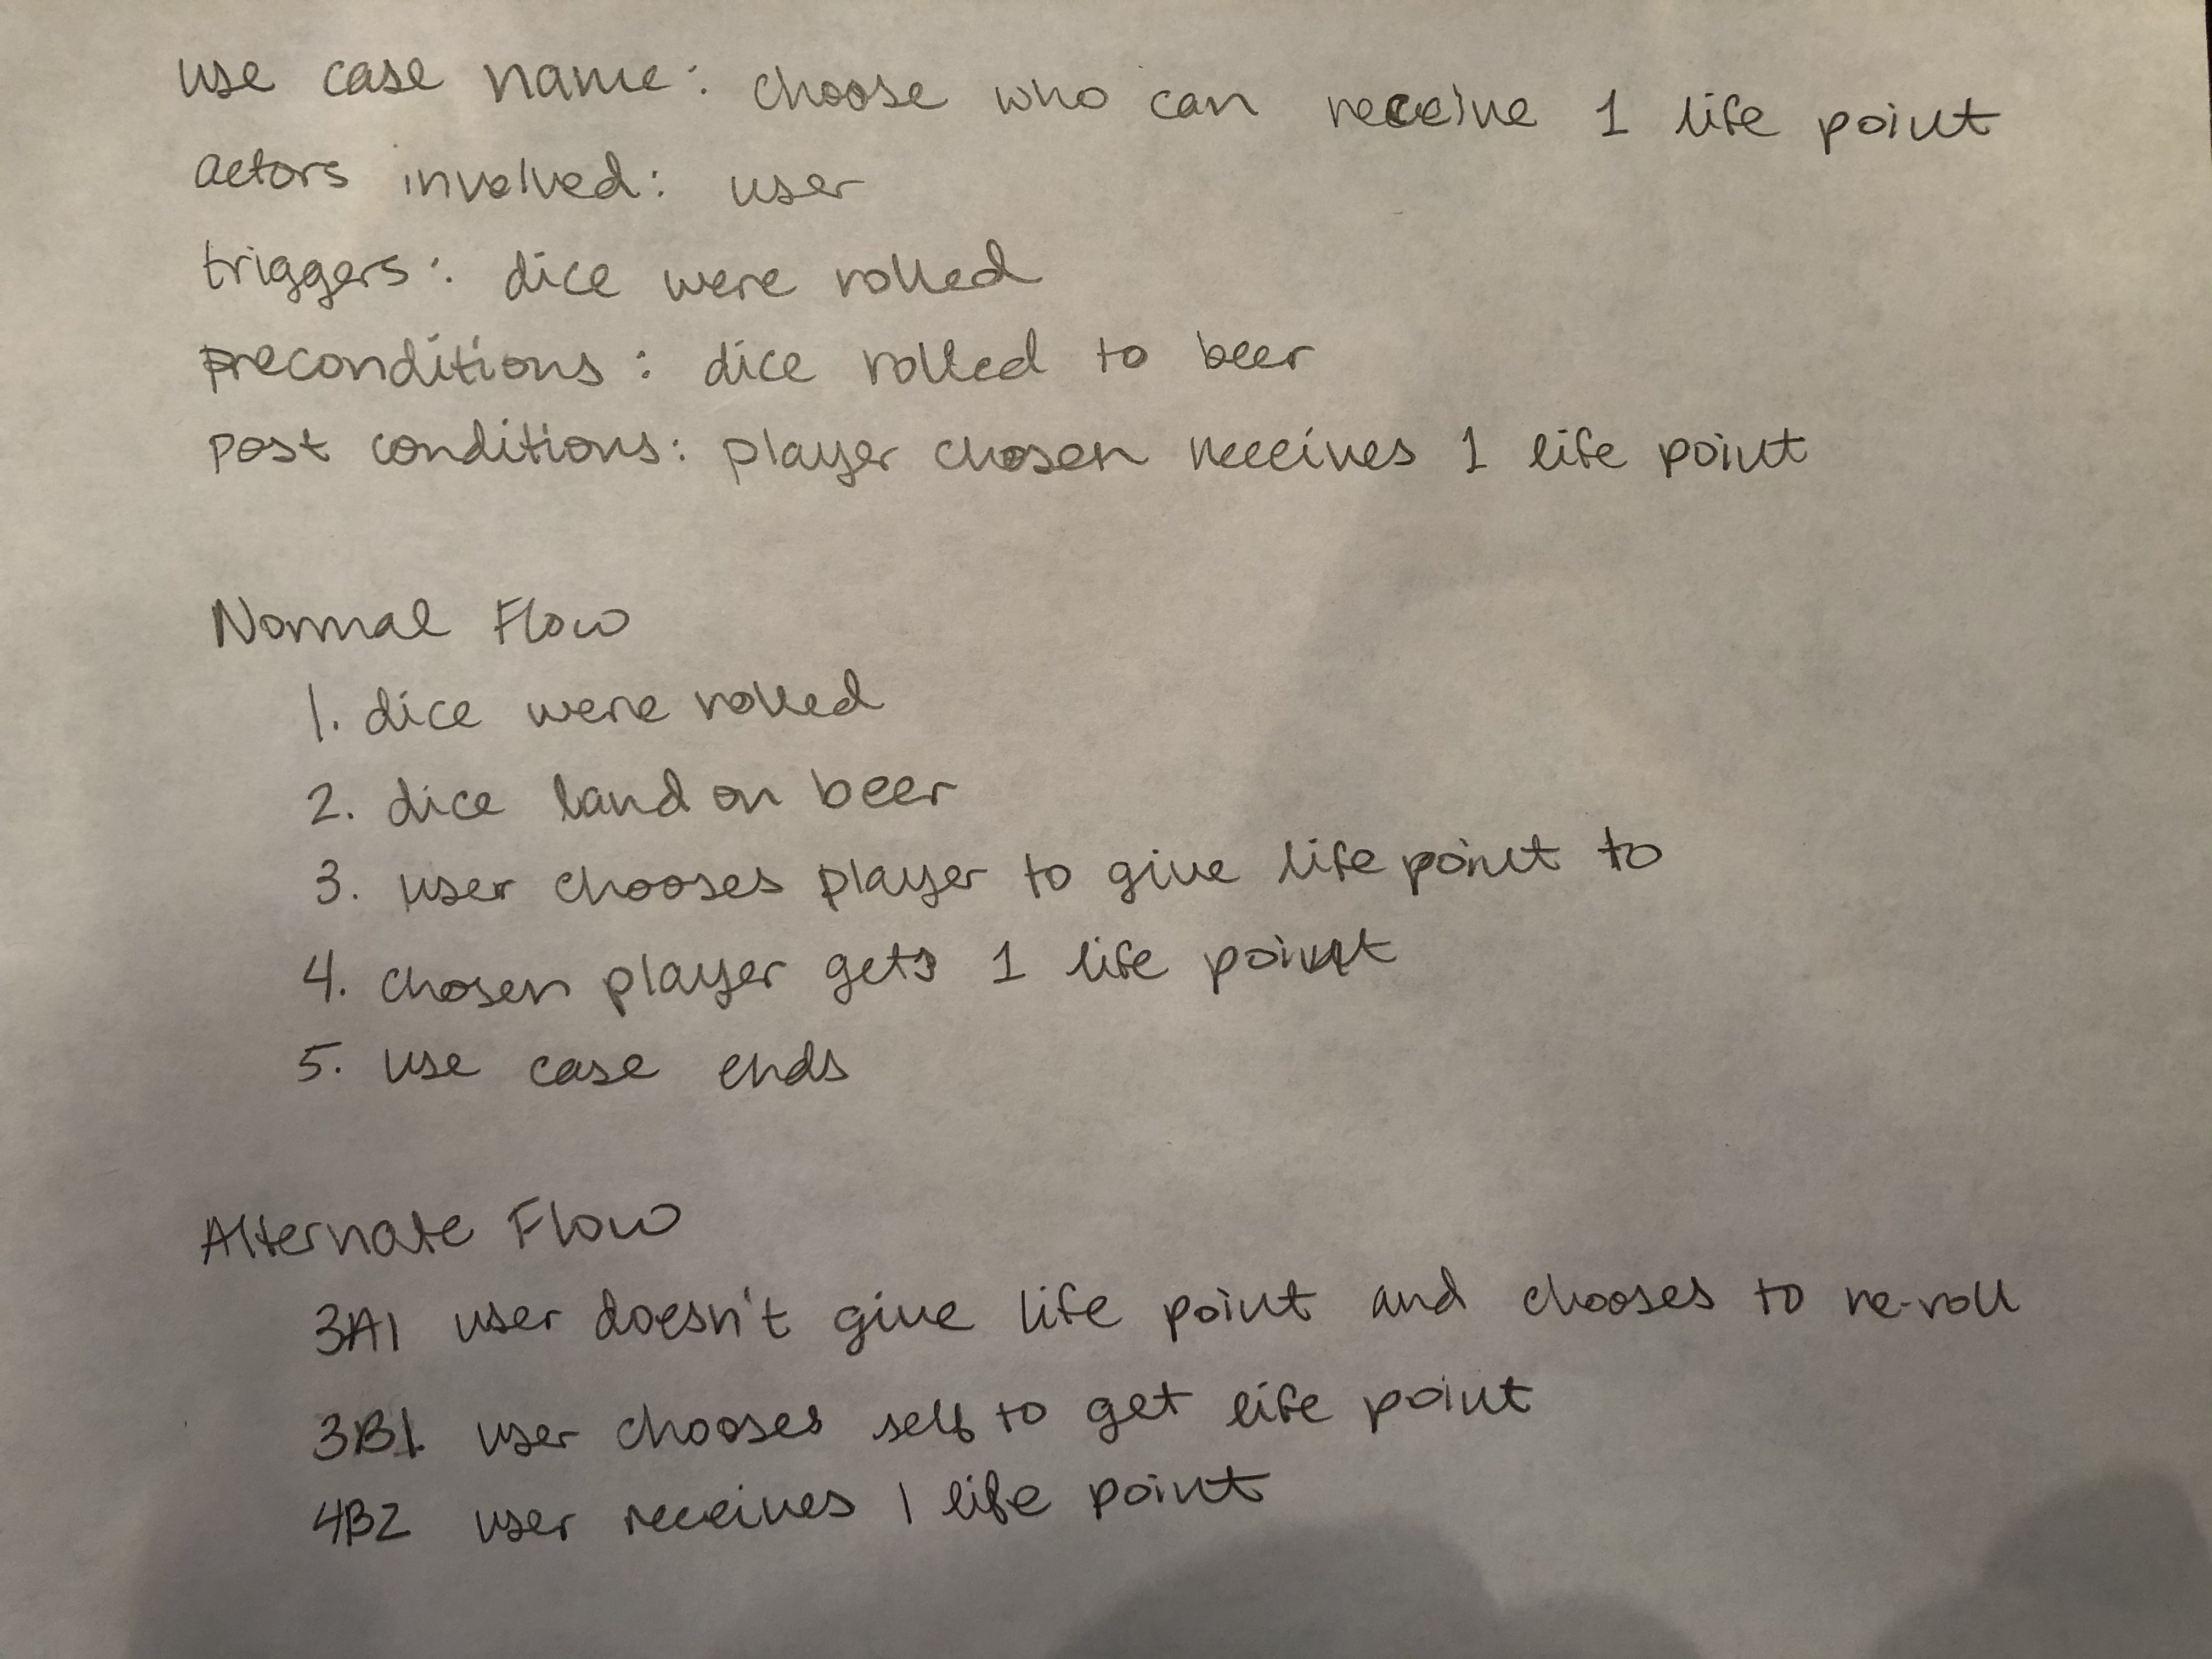 use case name: choose who can receive 1 life point
actors involved: user
triggers: dice were rolled
preconditions: dice rolled to beer
post conditions: player chosen receives 1 life point
Normal Flow
1. dice were rolled
2. dice land on beer
3. user chooses player to give life point to
4. chosen player gets 1 life point
5. use case ends
Alternate Flow
3A1 user doesn't give life point and chooses to re-roll
3B1 user chooses self to get life point
4B2 user receives 1 life point